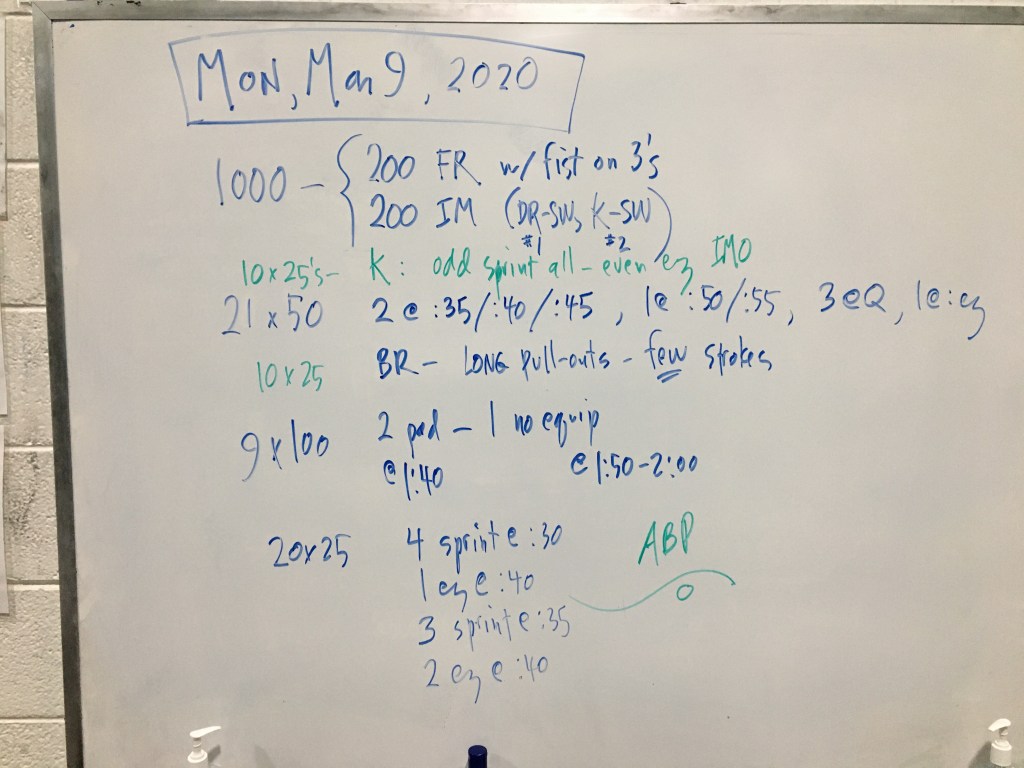 MON, Mar 9, 2020
1000 - { 200 FR w/ fist on 3's
200 IM (DR-SW, K-SW)
#1 #2
10x25's - K: odd sprint all - even ez IMO
21 x 50 2 @ :35/:40/:45, 1@ :50/:55, 3@Q, 1@:ez
10x25 BR - LONG pull-outs - few strokes
9x100 2 pad - 1 no equip
@1:40 @1:50-2:00
20x25 4 sprint @ :30
1 ez @ :40
3 sprint @ :35
2 ez @ :40
ABP